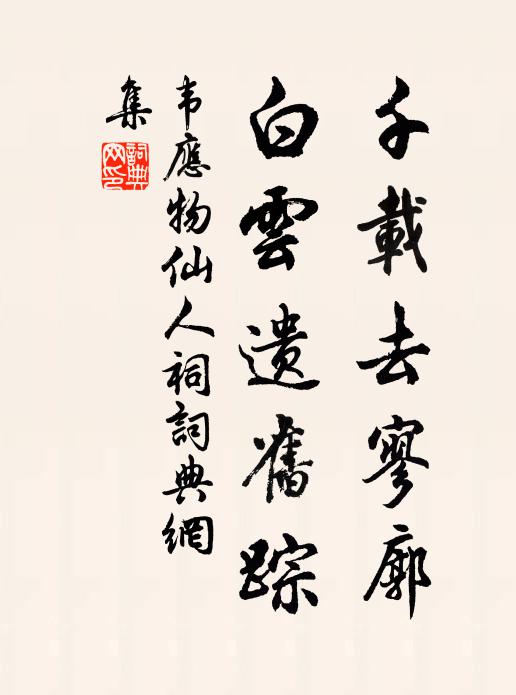 千載去寥廓
白雲遺舊踪
韦應物仙人祠詞典網
集
詞典網印